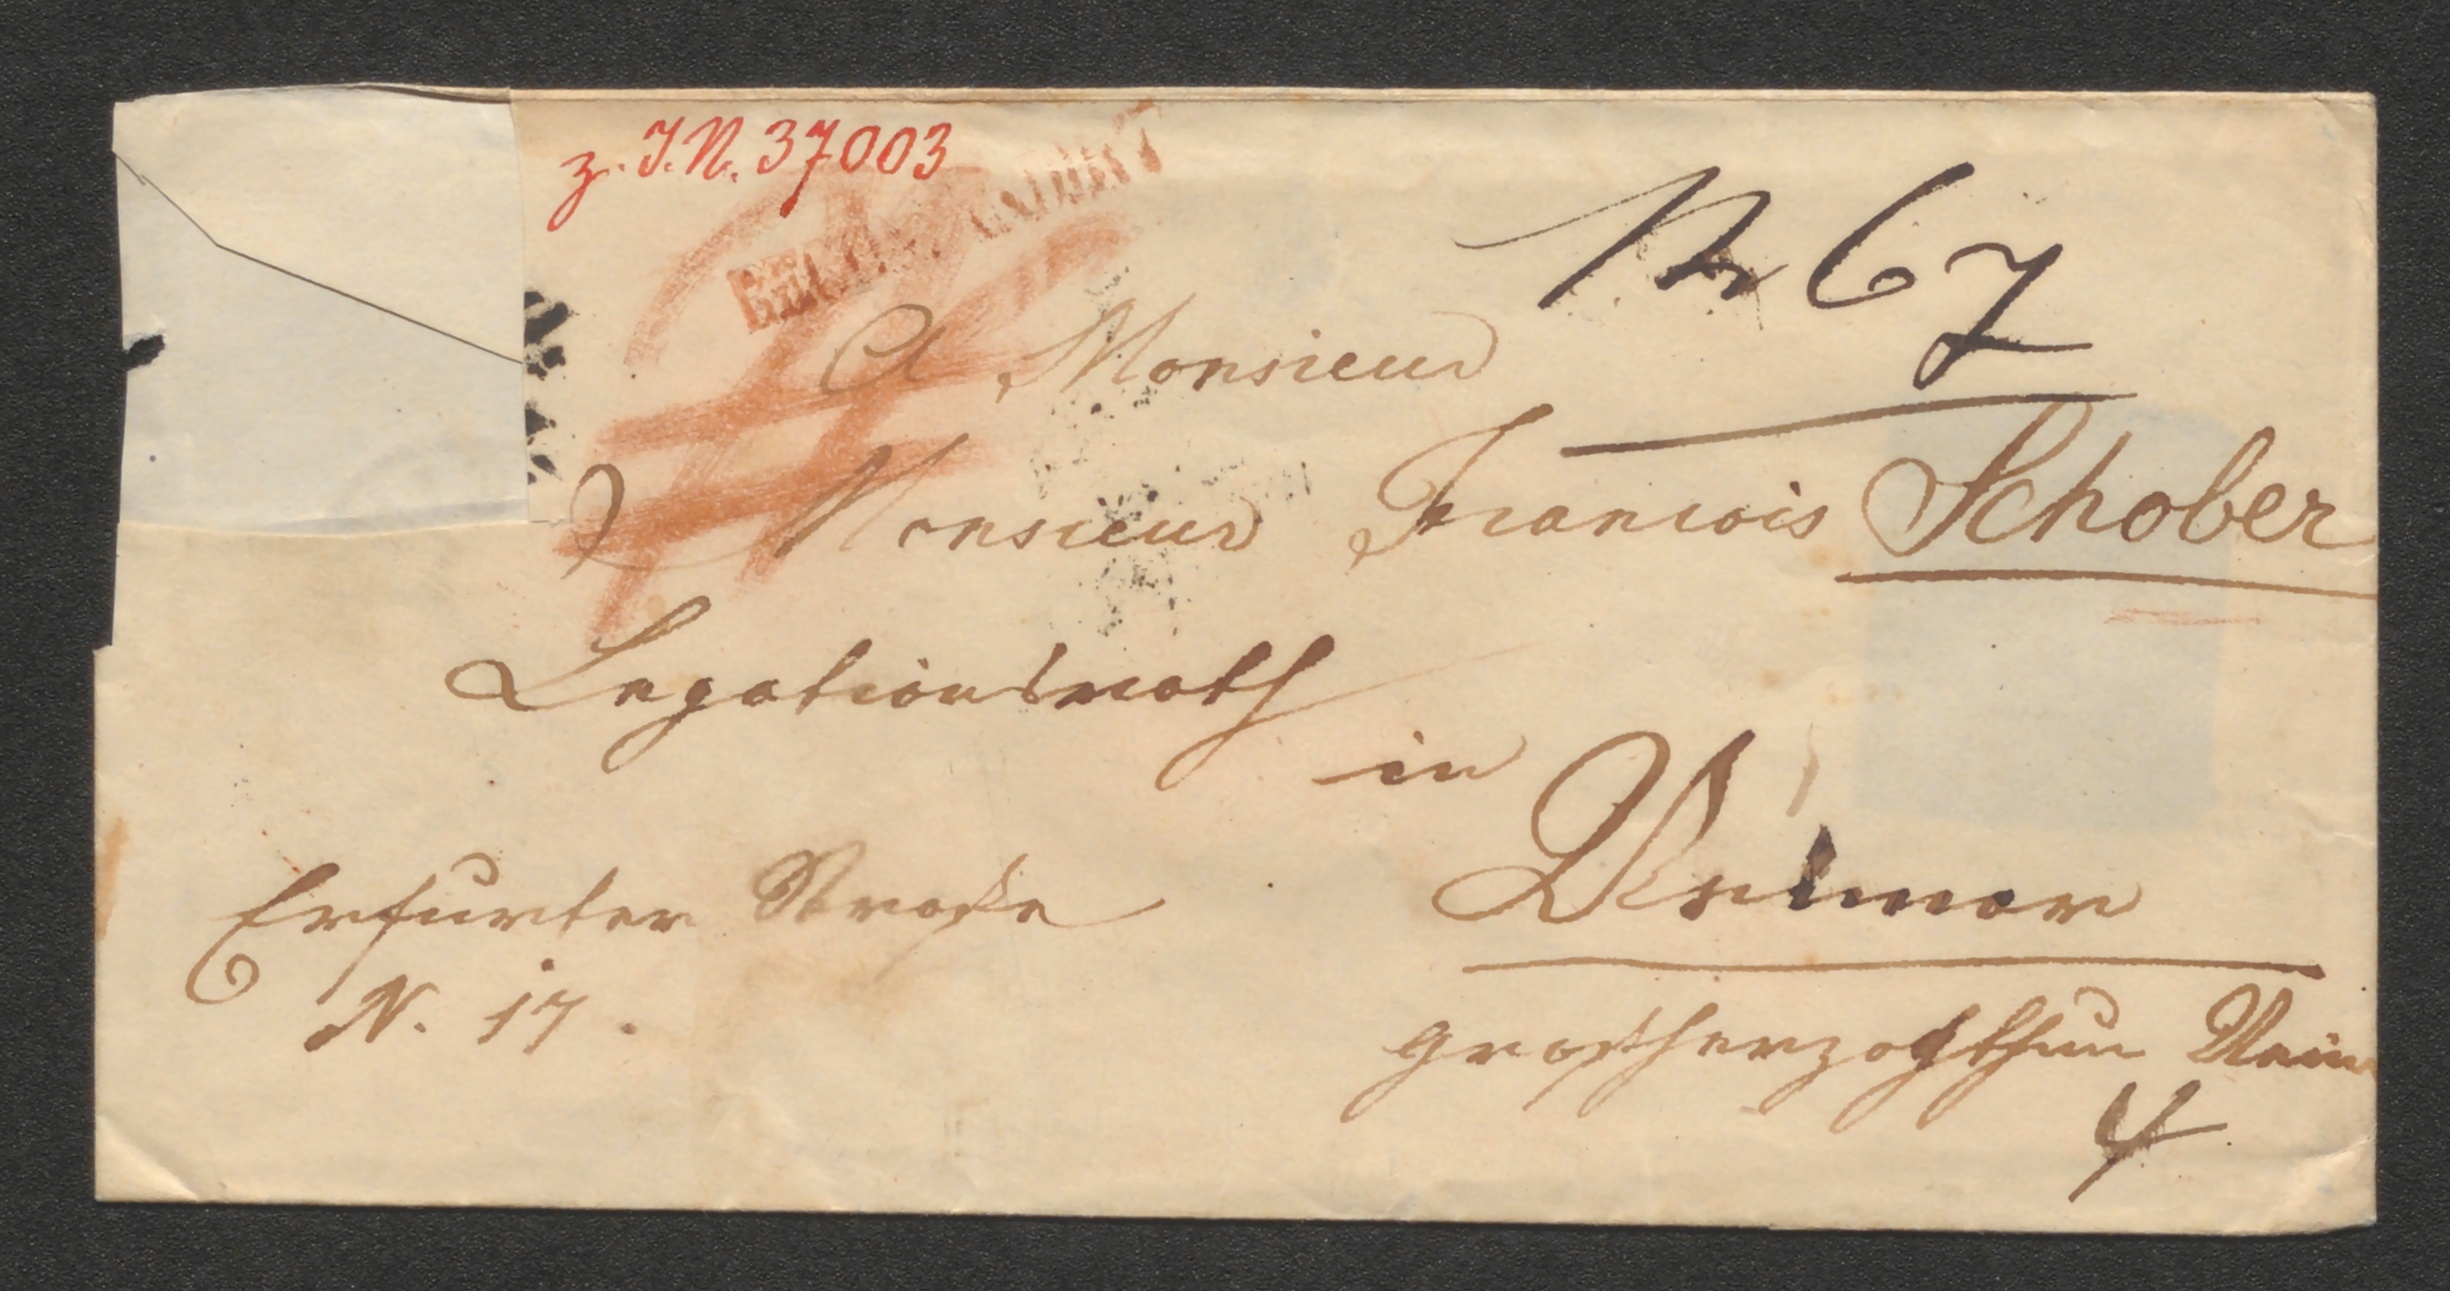 z. I.N. 37003
N 67
A Monsieur
Monsieur Francois Schober
Legationsrath
in
Weimar
Erfurter Straße
N. 17.
Großherzogthum
4